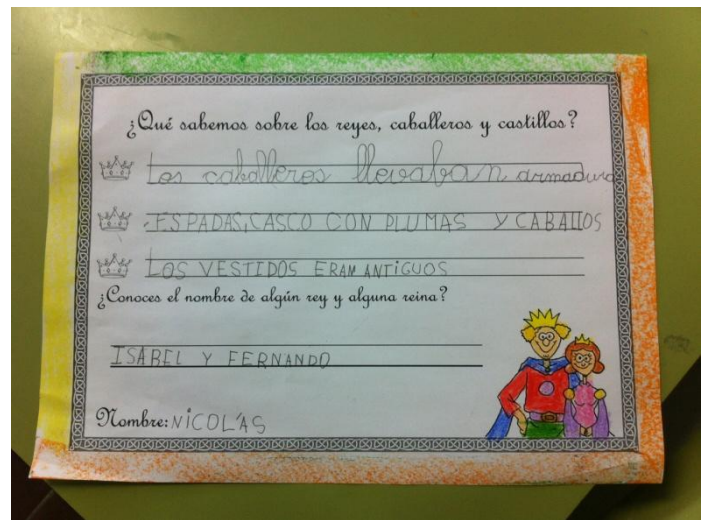 ¿Qué sabemos sobre los reyes, caballeros y castillos?
Los caballeros llevaban armadura
ESPADAS, CASCO CON PLUMAS Y CABALLOS
LOS VESTIDOS ERAN ANTIGUOS
¿Conoces el nombre de algún rey y alguna reina?
ISABEL Y FERNANDO
Nombre: NICOLÁS